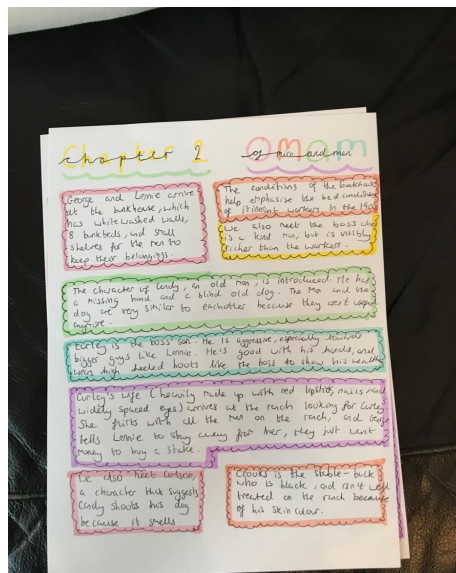 Chapter 2
OMAM
of mice and men
George and Lennie arrive
at the bunkhouse, which
has whitewashed walls,
8 bunkbeds, and small
shelves for the men to
keep their belongings.
The conditions of the bunkhouse
help emphasise the bad conditions
of itinerant workers in the 1930s
We also meet the boss who
is a kind man, but is visibly
richer than the workers.
The character of Candy, an old man, is introduced. He has
a missing hand and a blind old dog. The man and the
dog are very similar to eachother because they aren't useful
anymore.
Curley is the boss' son. He is aggressive, especially towards
bigger guys like Lennie. He's good with his hands, and
wears high heeled boots like the boss to show his wealth.
Curley's wife (heavily made up with red lipstick, nails and
widely spaced eyes) arrives at the ranch looking for Curley.
She flirts with all the men on the ranch, and George
tells Lennie to stay away from her, they just want
money to buy a stake.
We also meet Carlson,
a character that suggests
Candy shoots his dog
because it smells
Crooks is the stable-buck
who is black, and isn't well
treated on the ranch because
of his skin colour.